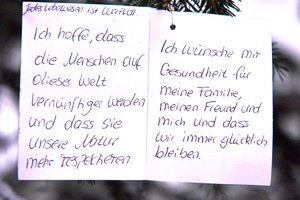 Jedes Lebewesen ist wertvoll.
Ich hoffe, dass
die Menschen auf
dieser Welt
vernünftiger werden
und dass sie
unsere Natur
mehr respektieren.
Ich wünsche mir
Gesundheit für
meine Familie,
meinen Freund und
mich und dass
wir immer glücklich
bleiben.